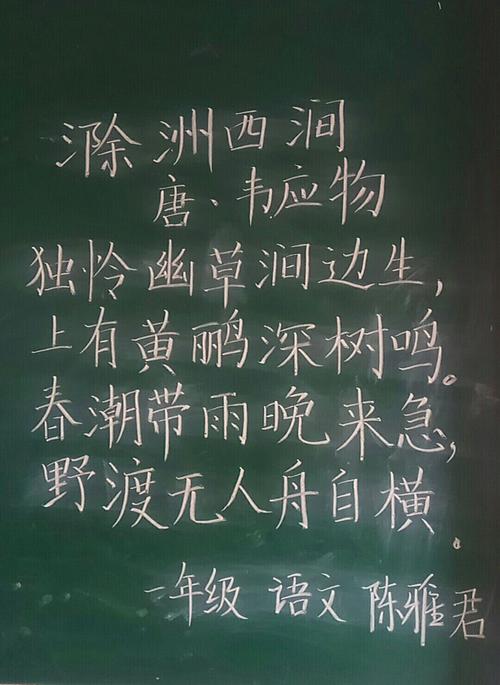 滁洲西涧
唐、韦应物
独怜幽草涧边生,
上有黄鹂深树鸣。
春潮带雨晚来急,
野渡无人舟自横.
一年级 语文 陈雅君